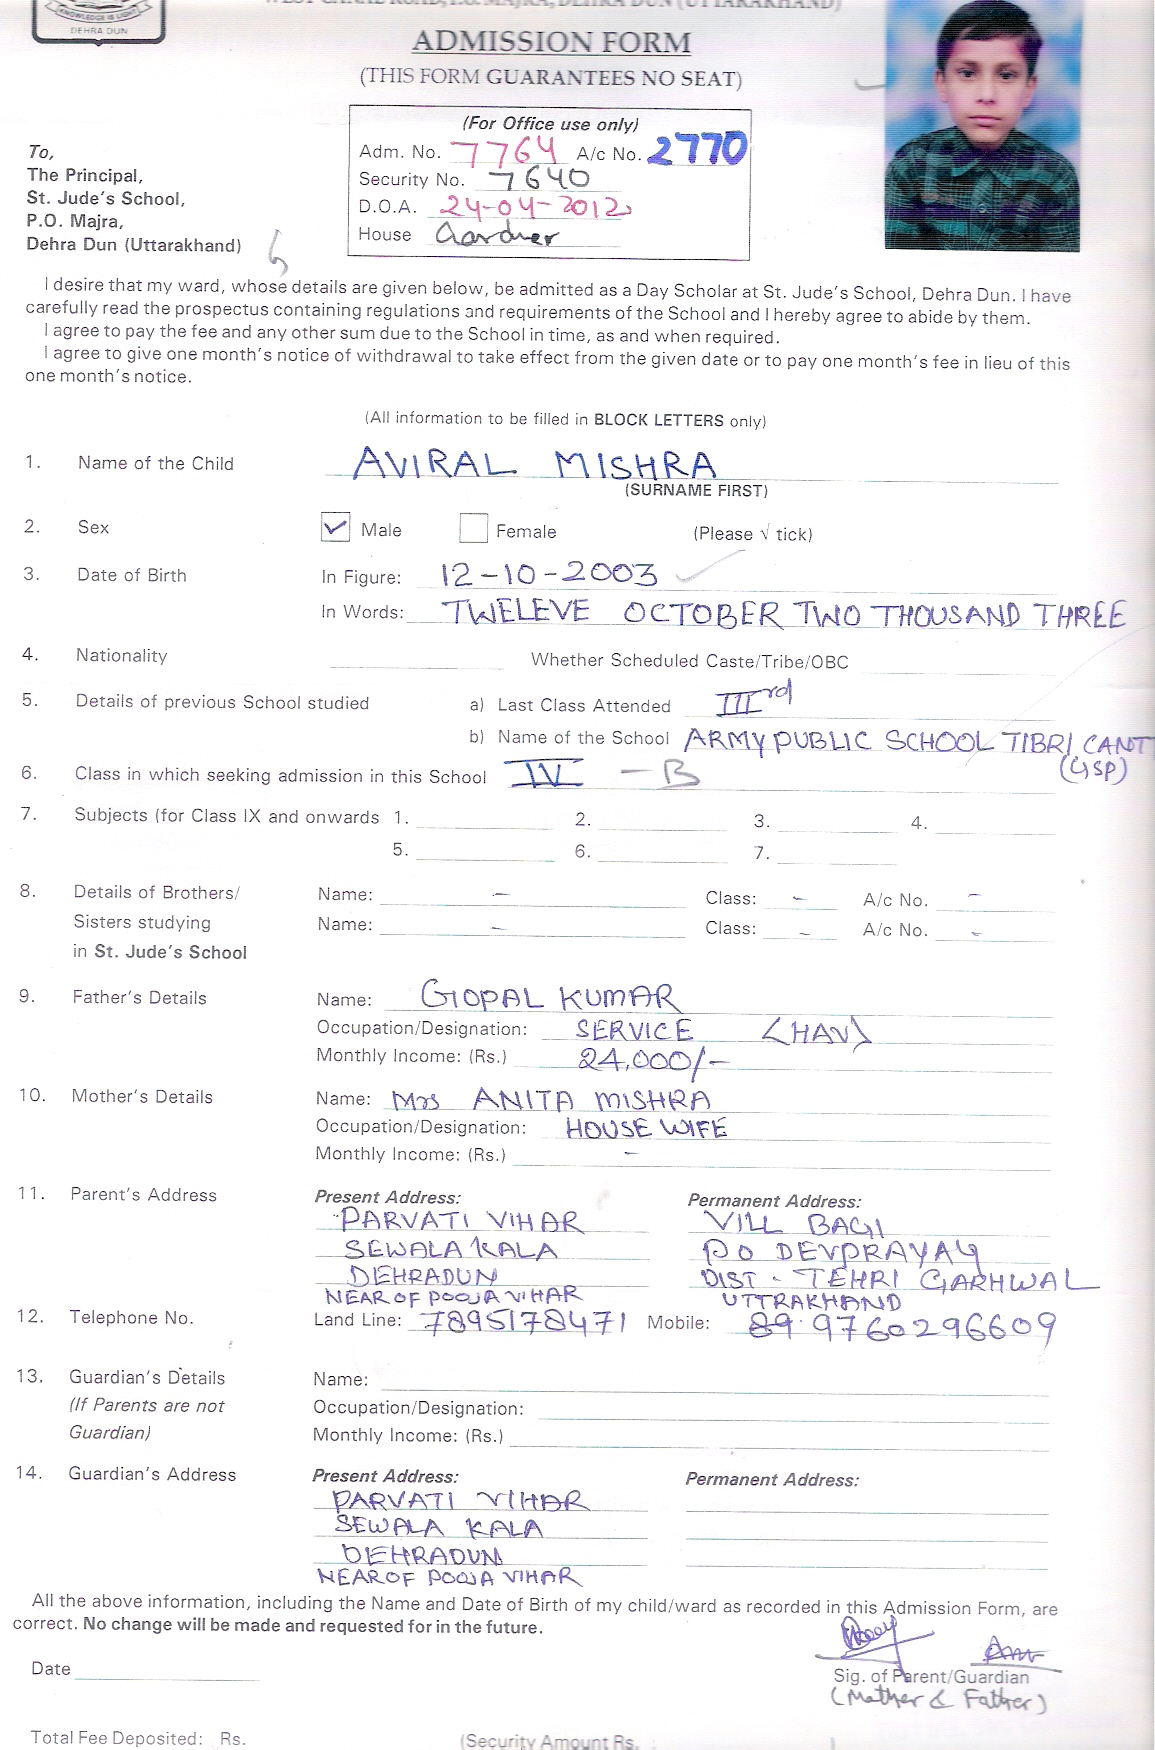 KNOWLEDGE IS LIGHT
DEHRA DUN
WEST CANAL ROAD, P.O. MAJRA, DEHRA DUN (UTTARAKHAND)
ADMISSION FORM
(THIS FORM GUARANTEES NO SEAT)
(For Office use only)
Adm. No. 7764 A/c No. 2770
Security No. 7640
D.O.A. 24-04-2012
House Gardner
To,
The Principal,
St. Jude's School,
P.O. Majra,
Dehra Dun (Uttarakhand)
I desire that my ward, whose details are given below, be admitted as a Day Scholar at St. Jude's School, Dehra Dun. I have
carefully read the prospectus containing regulations and requirements of the School and I hereby agree to abide by them.
I agree to pay the fee and any other sum due to the School in time, as and when required.
I agree to give one month's notice of withdrawal to take effect from the given date or to pay one month's fee in lieu of this
one month's notice.
(All information to be filled in BLOCK LETTERS only)
1. Name of the Child AVIRAL MISHRA
(SURNAME FIRST)
2. Sex ✓ Male Female (Please √ tick)
3. Date of Birth In Figure: 12-10-2003
In Words: TWELEVE OCTOBER TWO THOUSAND THREE
4. Nationality Whether Scheduled Caste/Tribe/OBC
5. Details of previous School studied a) Last Class Attended IIIrd
b) Name of the School ARMY PUBLIC SCHOOL TIBRI CANTT
(GSP)
6. Class in which seeking admission in this School IV - B
7. Subjects (for Class IX and onwards 1. 2. 3. 4.
5. 6. 7.
8. Details of Brothers/ Name: - Class: - A/c No. -
Sisters studying Name: - Class: - A/c No. -
in St. Jude's School
9. Father's Details Name: GOPAL KUMAR
Occupation/Designation: SERVICE (HAV)
Monthly Income: (Rs.) 24,000/-
10. Mother's Details Name: Mrs ANITA MISHRA
Occupation/Designation: HOUSE WIFE
Monthly Income: (Rs.) -
11. Parent's Address Present Address: Permanent Address:
PARVATI VIHAR VILL BAGI
SEWALA KALA PO DEVPRAYAG
DEHRADUN DIST - TEHRI GARHWAL
NEAR OF POOJA VIHAR UTTRAKHAND
12. Telephone No. Land Line: 7895178471 Mobile: 89 9760296609
13. Guardian's Details Name:
(If Parents are not Occupation/Designation:
Guardian) Monthly Income: (Rs.)
14. Guardian's Address Present Address: Permanent Address:
PARVATI VIHAR
SEWALA KALA
DEHRADUN
NEAR OF POOJA VIHAR
All the above information, including the Name and Date of Birth of my child/ward as recorded in this Admission Form, are
correct. No change will be made and requested for in the future.
Date
Sig. of Parent/Guardian
(Mather & Father)
Total Fee Deposited: Rs. (Security Amount Rs.